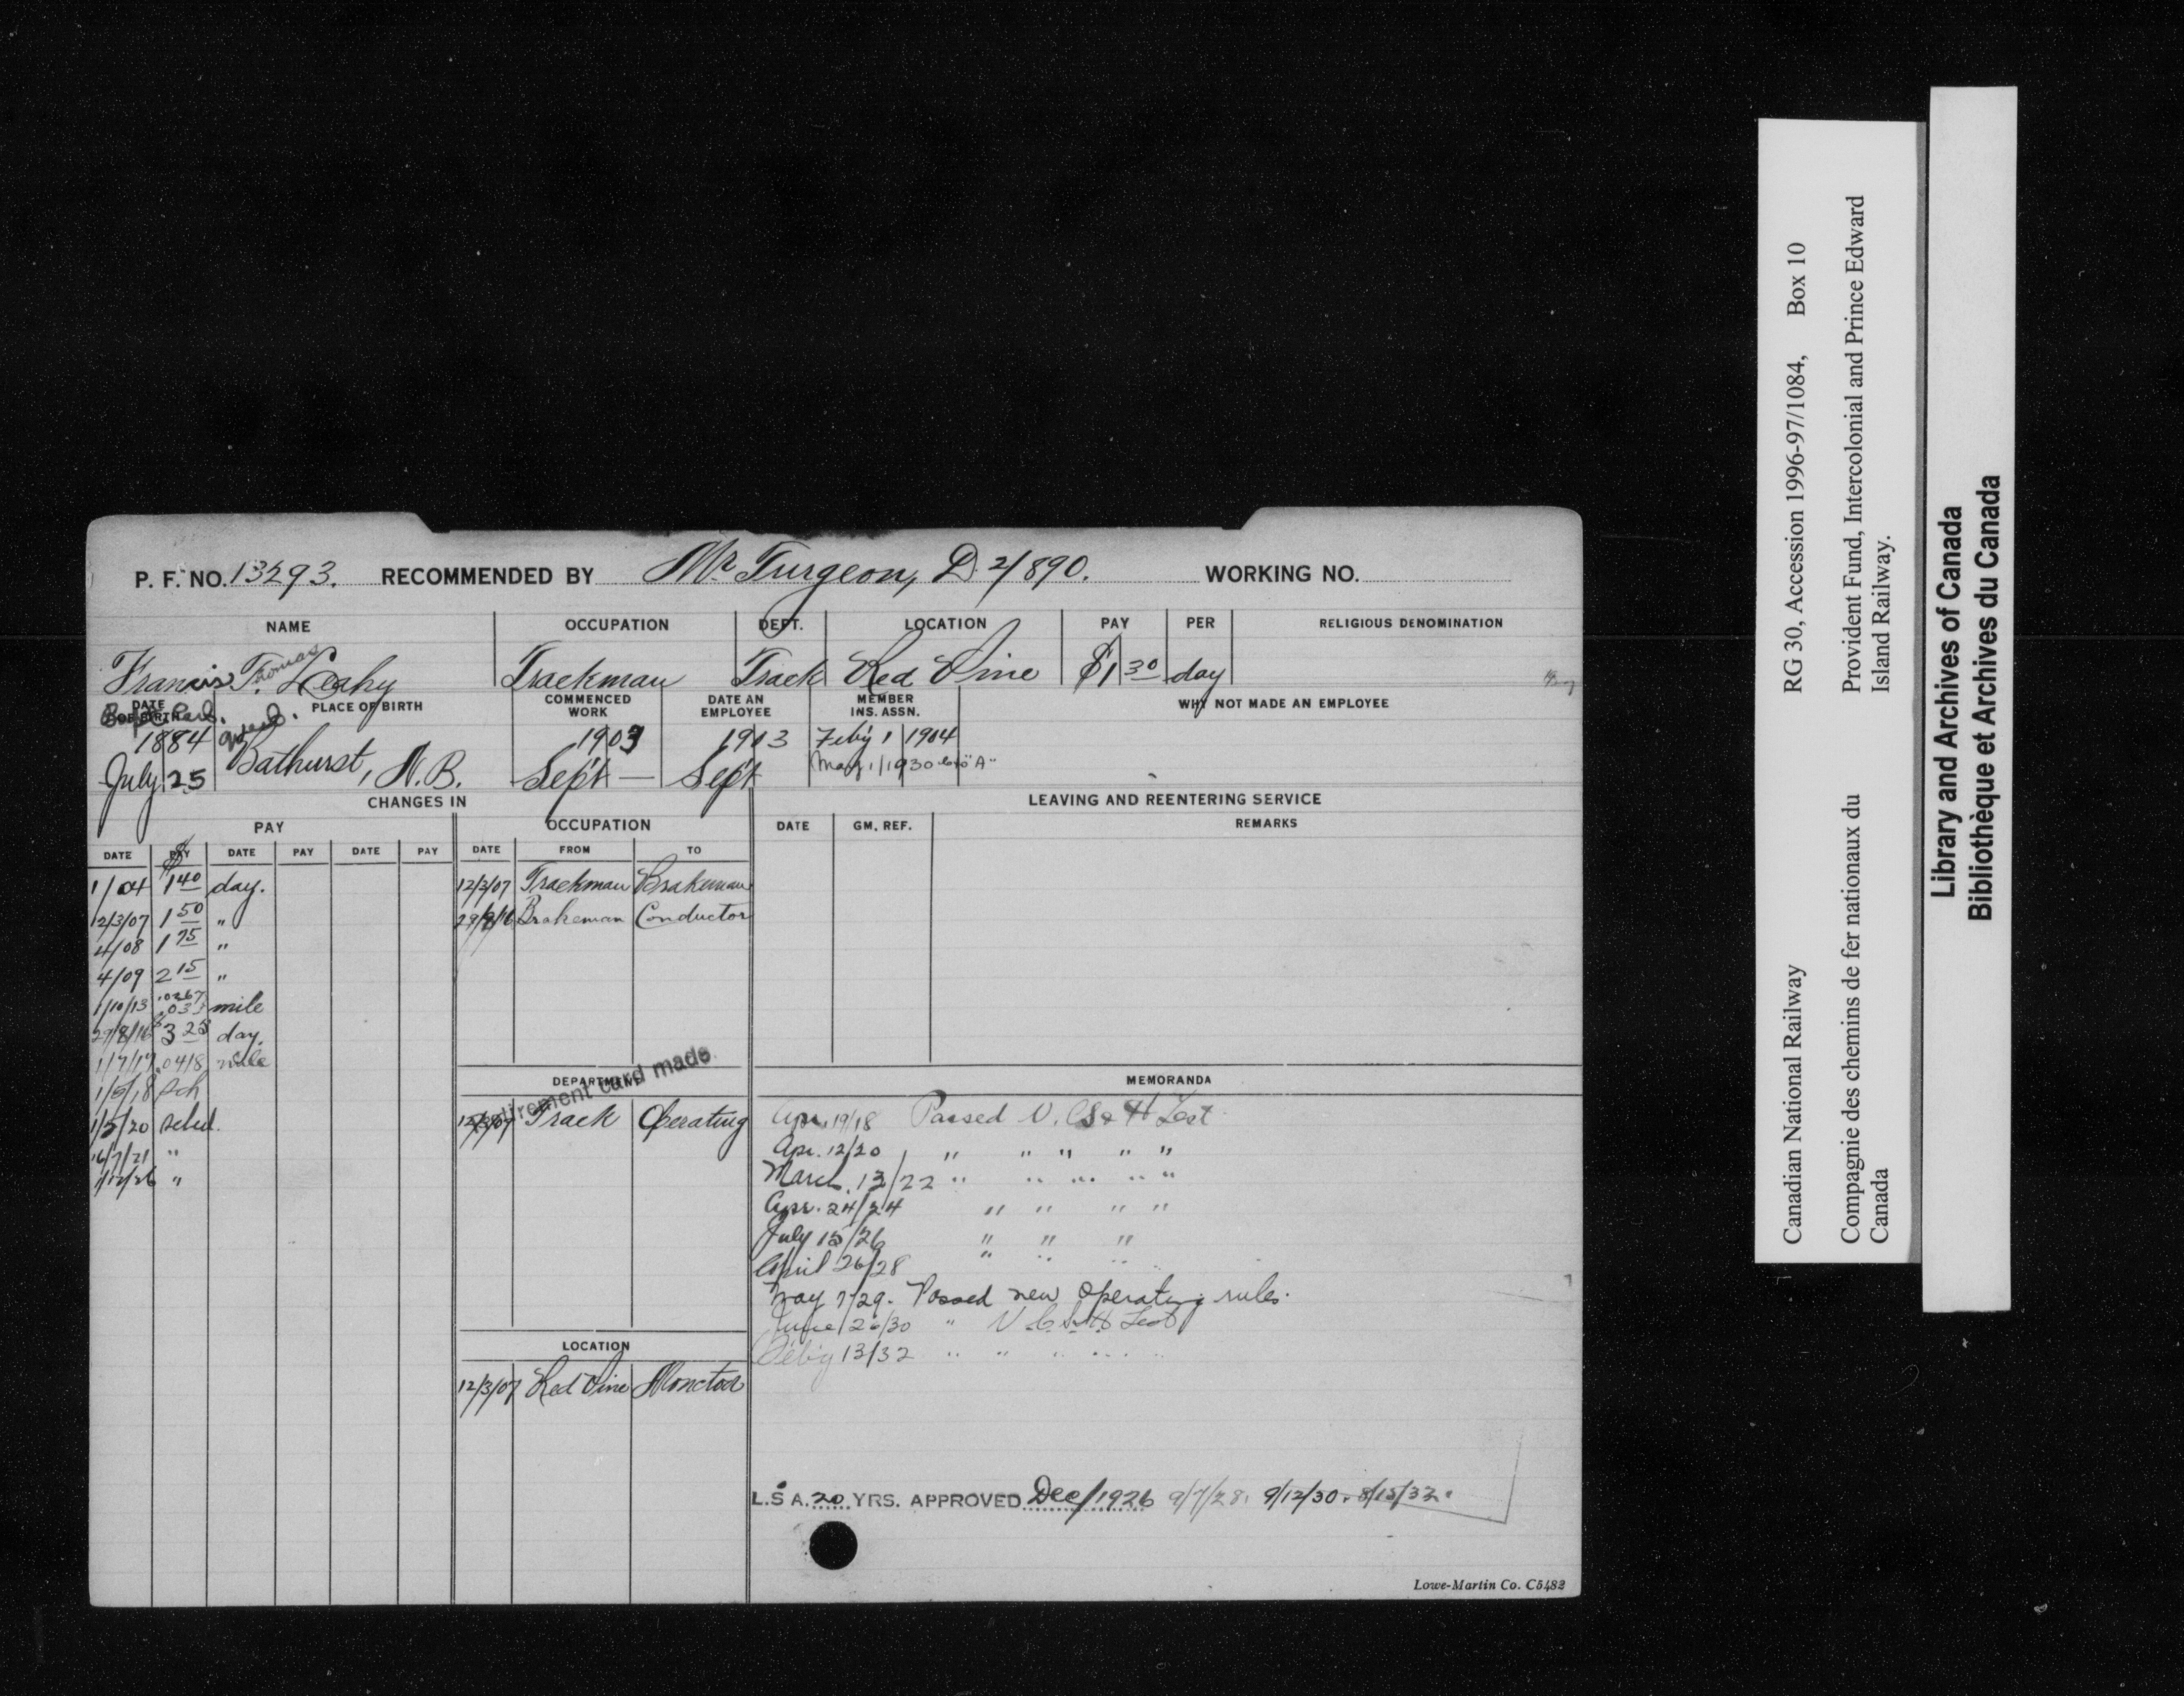 P. F. NO. 13293. RECOMMENDED BY Mr Turgeon, D 2/890. WORKING NO.
NAME OCCUPATION DEPT. LOCATION PAY PER RELIGIOUS DENOMINATION
Thomas
Francis T. Leahy Trackman Track Red Pine $1 30 day
DATE OF BIRTH PLACE OF BIRTH COMMENCED WORK DATE AN EMPLOYEE MEMBER INS. ASSN. WHY NOT MADE AN EMPLOYEE
1884 1903 1903 Feb'y 1 1904
July 25 Bathurst, N.B. Sept — Sept May 1/1930 "A"
CHANGES IN LEAVING AND REENTERING SERVICE
PAY OCCUPATION DATE GM. REF. REMARKS
DATE PAY DATE PAY DATE PAY DATE FROM TO
$
1/04 1 40 day. 12/3/07 Trackman Brakeman
12/3/07 1 50 " 29/8/16 Brakeman Conductor
4/08 1 75 "
4/09 2 15 "
1/10/13 .0267 mile
29/8/16 3 25 day.
1/7/17 .0418 mile
1/5/18 sch
1/5/20 sched.
16/7/21 "
1/12/26 "
DEPARTMENT
Retirement card made
12/3/07 Track Operating
LOCATION
12/3/07 Red Pine Moncton
MEMORANDA
Apr. 19/18 Passed V. C. S & H Test
Apr. 12/20 " " " " "
March 13/22 " " " " "
Apr. 24/24 " " " "
July 15/26 " " "
April 26/28 " " "
May 7/29. Passed new operating rules.
June 26/30 " V. C. S & H Test
Feb'y 13/32 " " " " "
L.S A. 20 YRS. APPROVED Dec/1926 9/7/28. 9/12/30. 8/15/32.
Lowe-Martin Co. C5482
Canadian National Railway RG 30, Accession 1996-97/1084, Box 10
Compagnie des chemins de fer nationaux du Provident Fund, Intercolonial and Prince Edward
Canada Island Railway.
Library and Archives of Canada
Bibliothèque et Archives du Canada